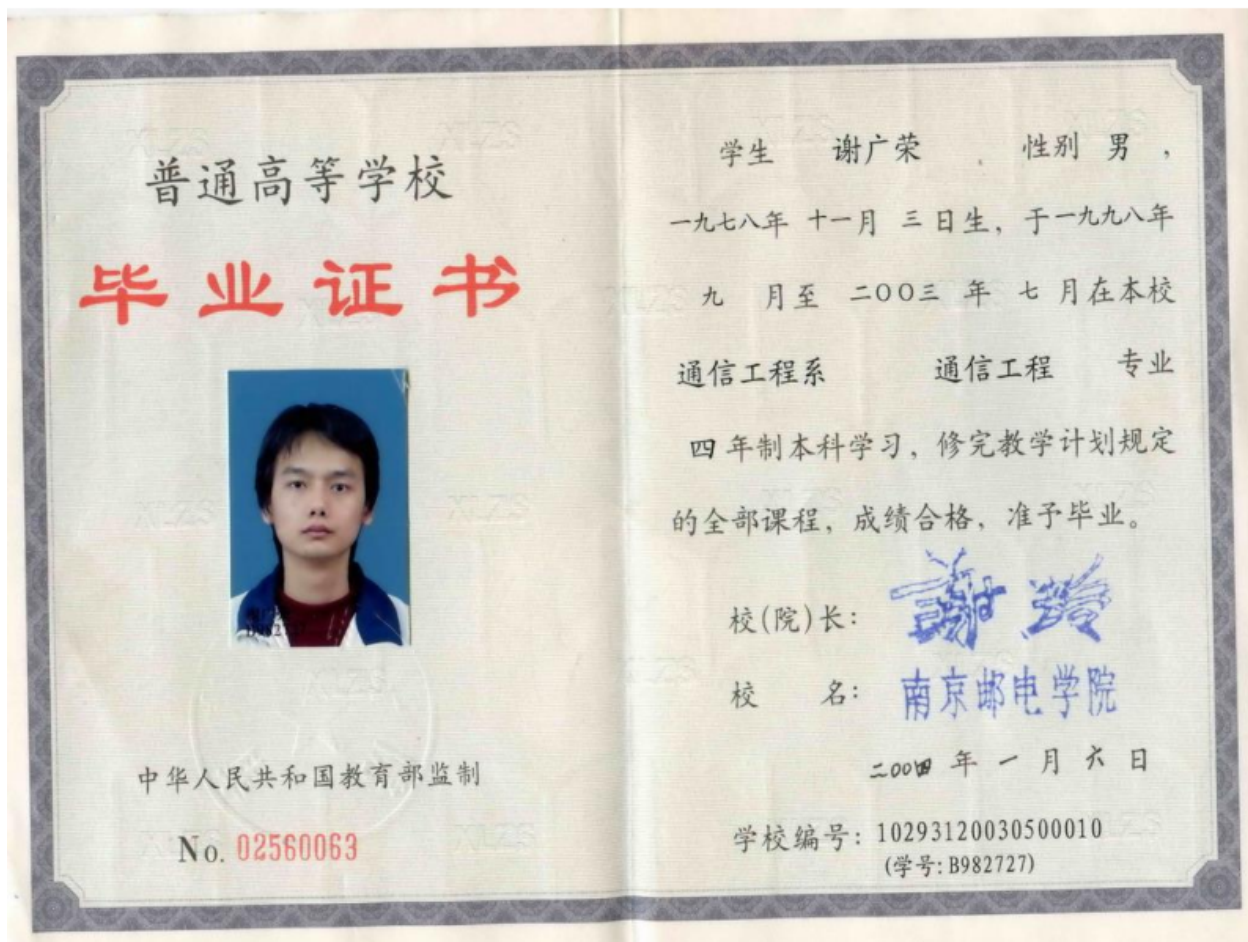 普通高等学校
毕业证书
中华人民共和国教育部监制
No. 02560063
学生 谢广荣 , 性别 男 ,
一九七八年 十一月 三日生, 于一九九八年
九 月至 二〇〇三 年 七 月在本校
通信工程系 通信工程 专业
四 年制本科学习, 修完教学计划规定
的全部课程, 成绩合格, 准予毕业。
校(院)长:
校 名: 南京邮电学院
二〇〇四 年 一 月 六 日
学校编号: 10293120030500010
(学号: B982727)